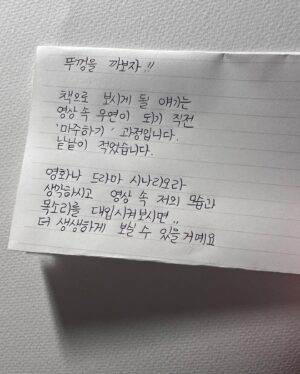 뚜껑을 까보자!!
책으로 보시게 될 얘기는
영상 속 우연이 되기 직전
'마주하기' 과정입니다.
낱낱이 적었습니다.
영화나 드라마 시나리오라
생각하시고 영상 속 저의 모습과
목소리를 대입시켜보시면,,
더 생생하게 보실 수 있을거예요